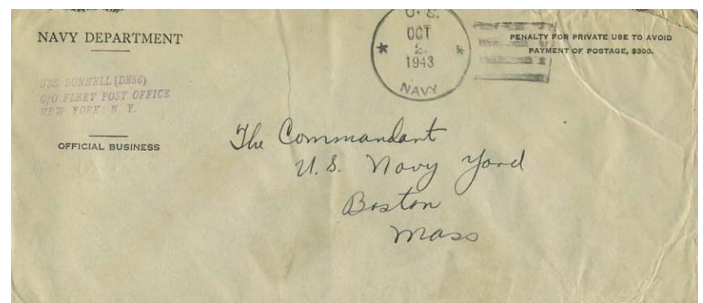 NAVY DEPARTMENT
USS DONNELL (DE56)
C/O FLEET POST OFFICE
NEW YORK N. Y.
OFFICIAL BUSINESS
U. S.
OCT
2
1943
NAVY
PENALTY FOR PRIVATE USE TO AVOID
PAYMENT OF POSTAGE, $300.
The Commandant
U.S. Navy Yard
Boston
Mass